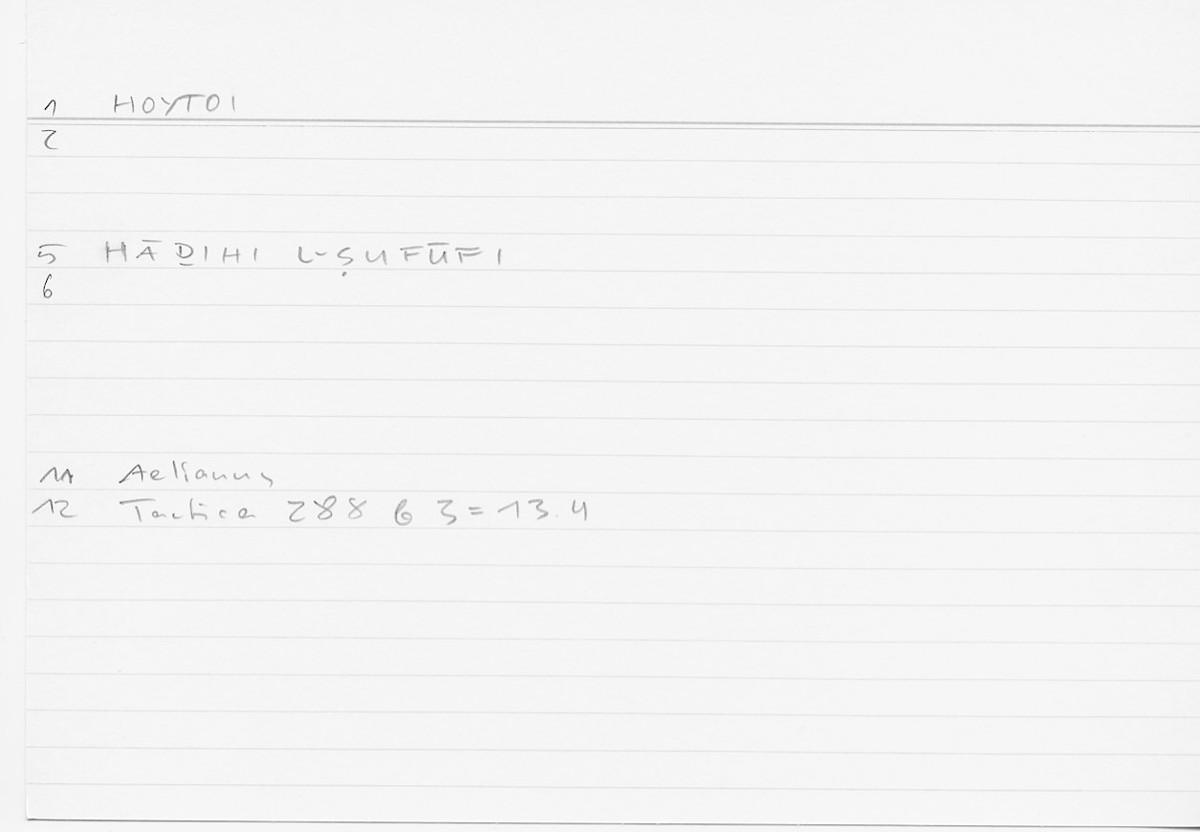 1 HOYTOI
2
5 HĀḎIHI L-ṢUFŪFI
6
11 Aelianus
12 Tactica 288 6 3 = 13.4